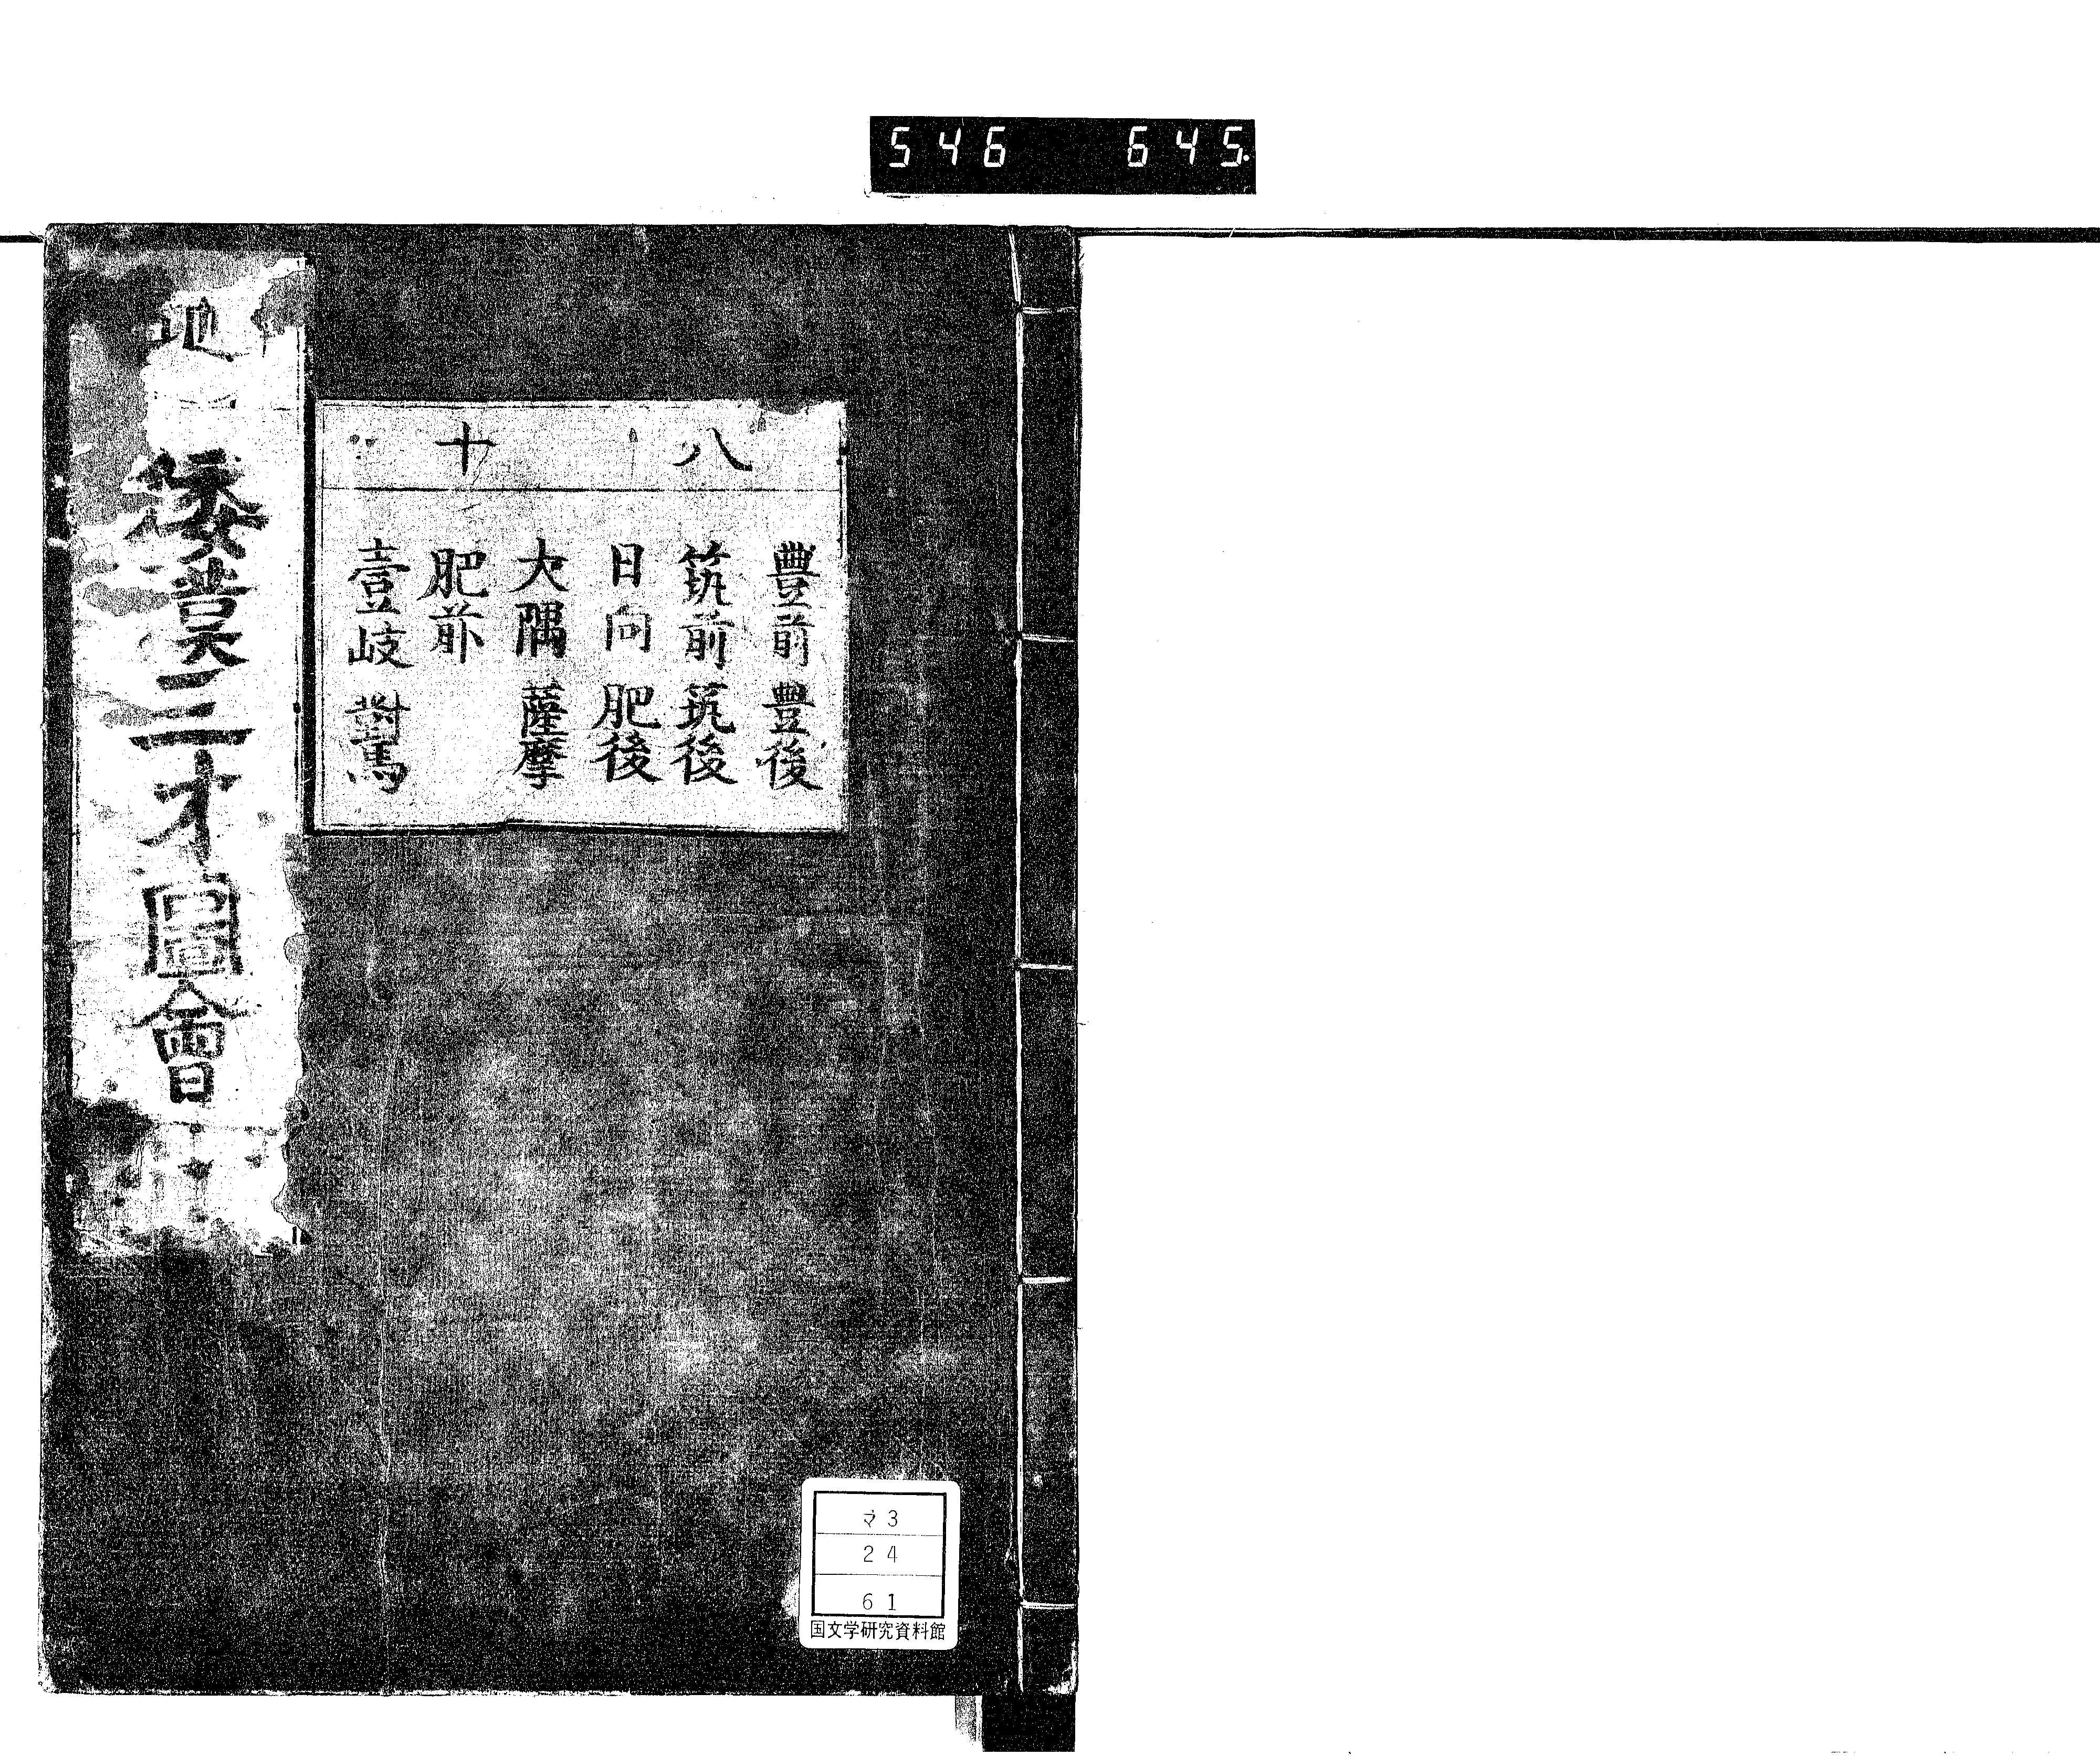 546 645.
八 十
豐前 豐後
筑前 筑後
日向 肥後
大隅 薩摩
肥前
壹岐 對馬
地
倭漢三才圖會
マ3
24
61
国文学研究資料館